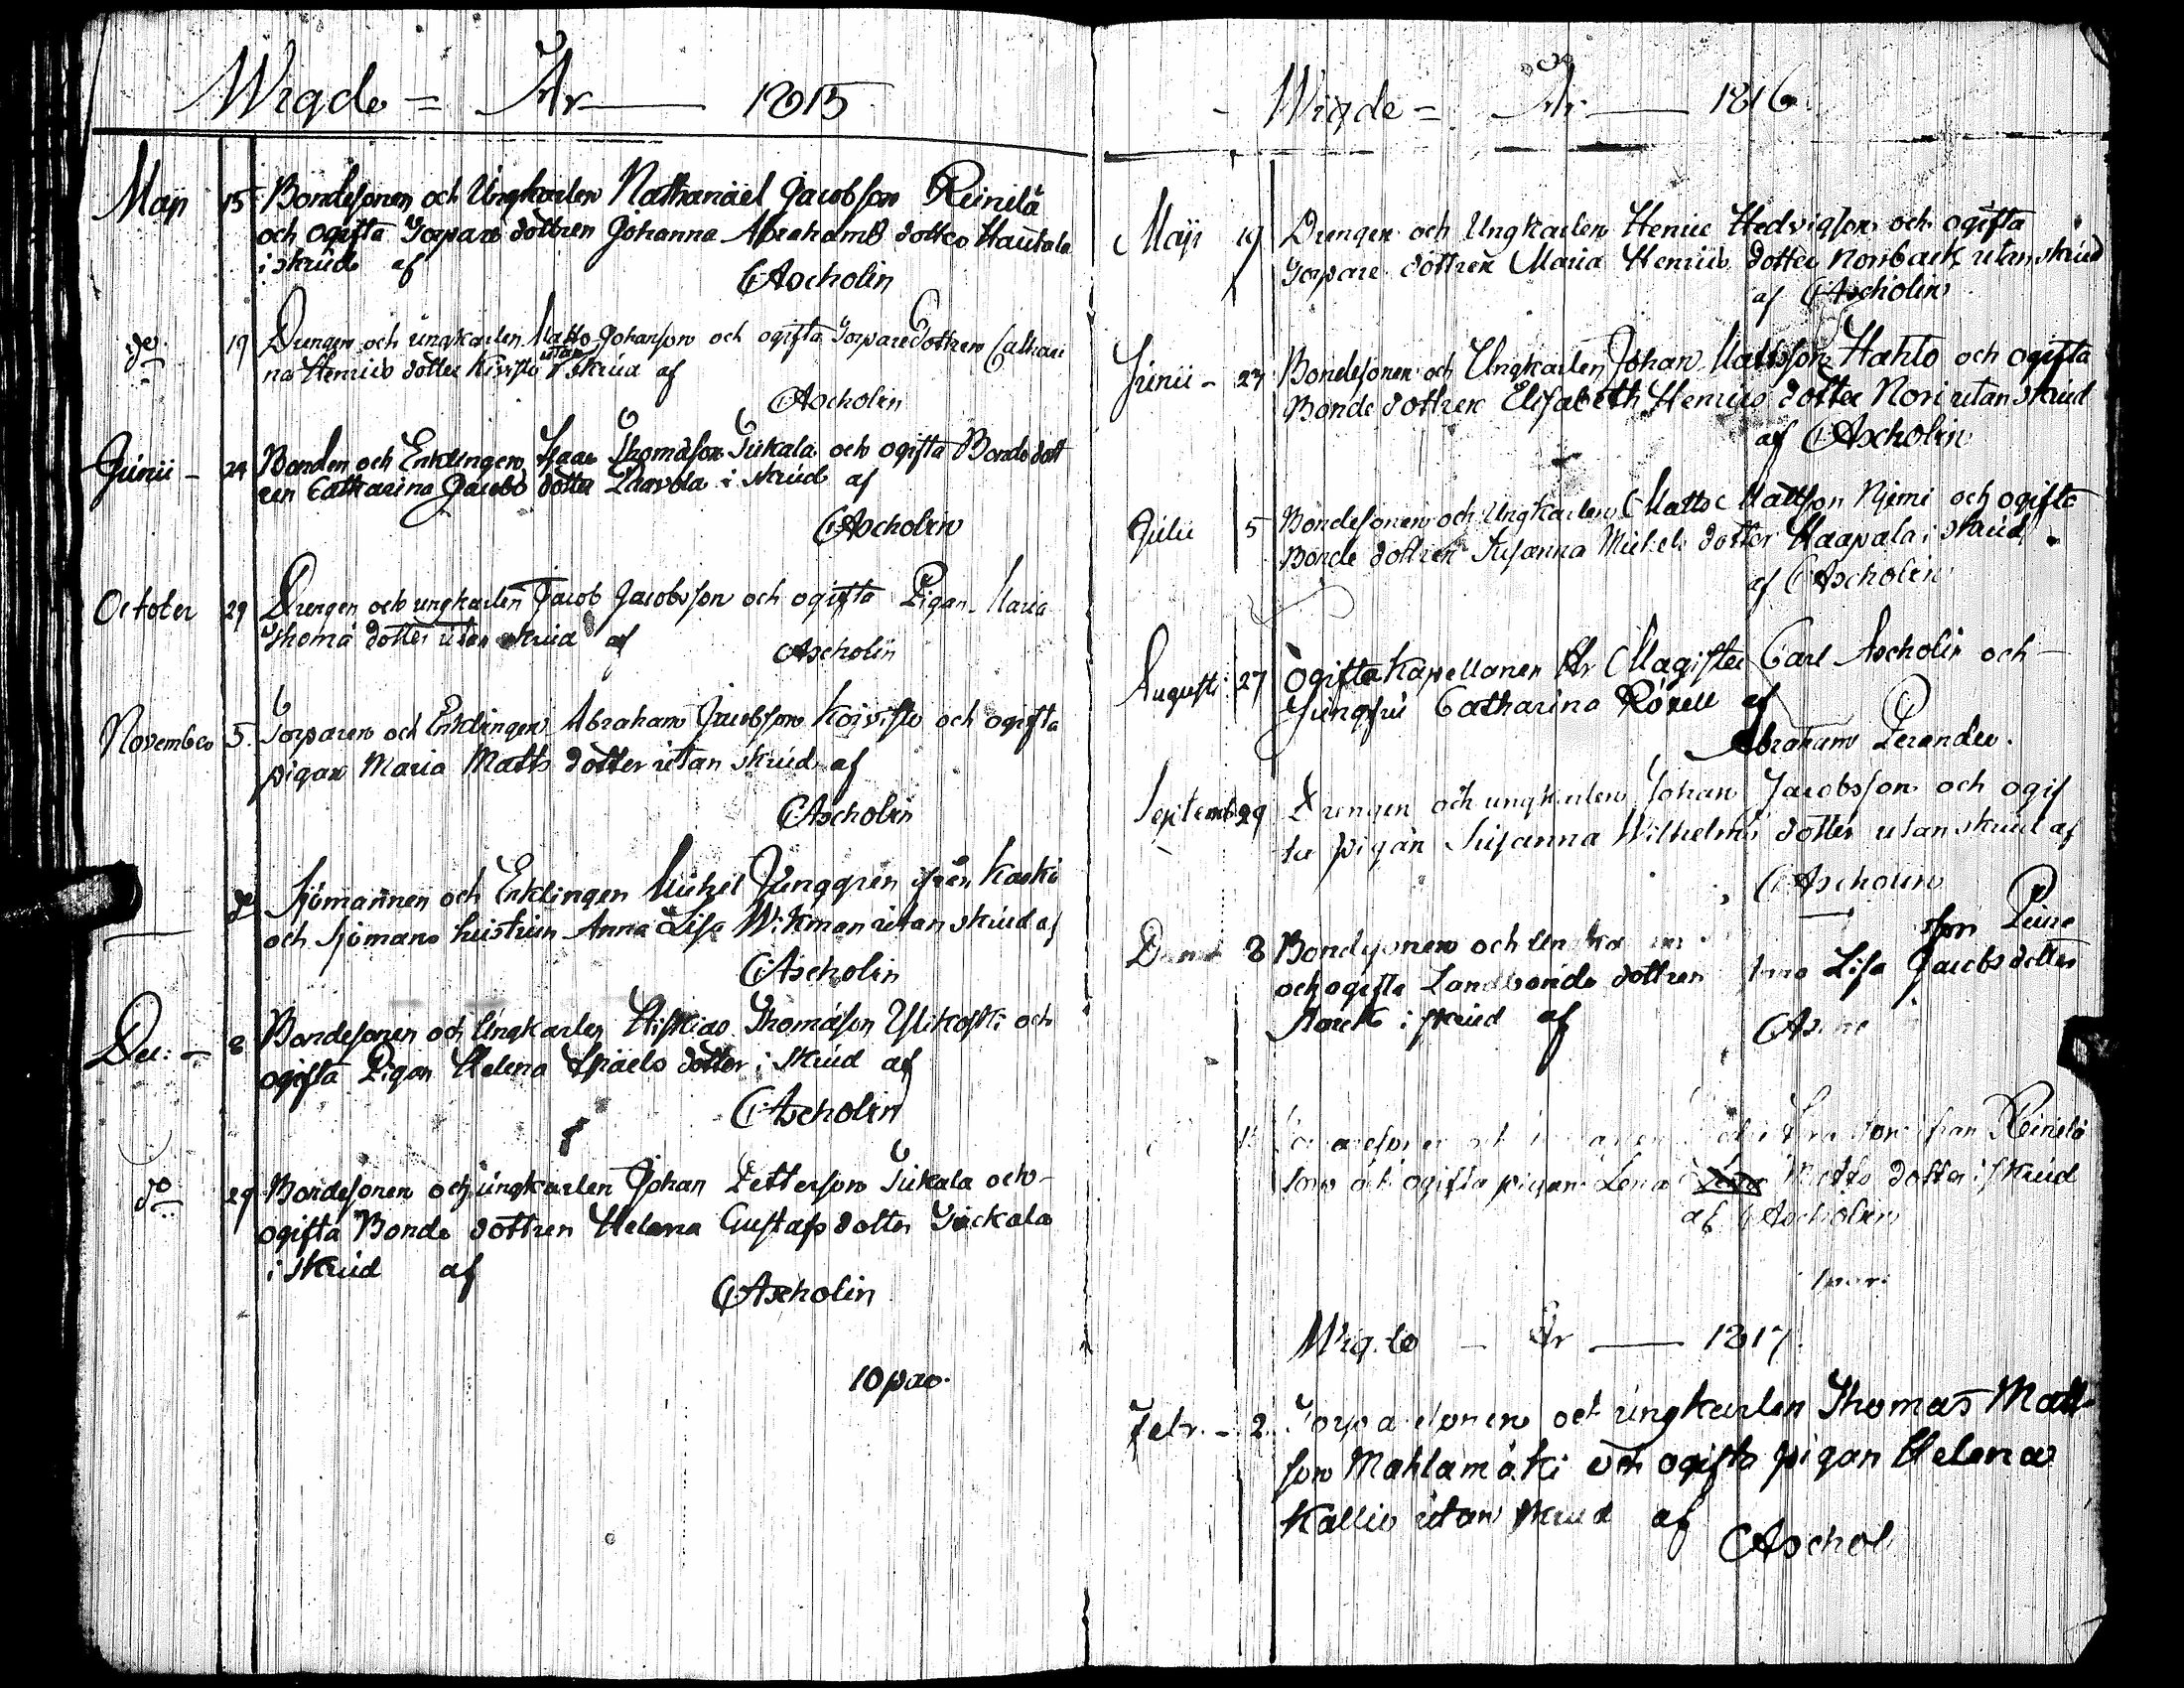 Wigde = År 1815
Maji 15 Bondesonen och Ungkarlen Nathanäel Jacobsson Reinilä
och ogifta Torpare dottren Johanna Abrahams dotter Hautala
i skrud af
CAscholin
do 19 Drengen och ungkarlen Matts Johansson och ogifta Torpare dottren Cathari
na Henrics dotter Kivistö utan skrud af
CAscholin
Junii - 24 Bonden och Enklingen Isaac Thomasson Tukala och ogifta Bonde dott
ren Catharina Jacobs dotter Paavola i skrud af
CAscholin
October 29 Drengen och ungkarlen Jacob Jacobsson och ogifta Pigan Maria
Thoma dotter utan skrud af CAscholin
November 5. Torparen och Enklingen Abraham Jacobsson Koivisto och ogifta
pigan Maria Matts dotter utan skrud af
CAscholin
do Sjömannen och Enklingen Michel Ljunggren ifrån Kaskö
och Sjömans hustrun Anna Lisa Wikman utan skrud af
CAscholin
Dec: - 8 Bondesonen och Ungkarlen Hiskias Thomasson Ylikoski och
ogifta Pigan Helena Israels dotter i skrud af
CAscholin
do 29 Bondesonen och ungkarlen Johan Pettersson Tukala och
ogifta Bonde dottren Helena Gustafs dotter Juckala
i skrud af
CAscholin
10 par.
- Wigde = År 1816
Maji 19 Drengen och Ungkarlen Henric Hedvigson och ogifta
Torpare dottren Maria Henrics dotter Norrback utan skrud
af CAscholin
Junii - 24 Bondesonen och Ungkarlen Johan Mattsson Hahto och ogifta
Bonde dottren Elisabeth Henrics dotter Nori utan skrud
af CAscholin
Julii 5 Bondesonen och Ungkarlen Matts Mattsson Njemi och ogifta
Bonde dottren Susanna Michels dotter Haapala i skrud
af CAscholin
Augusti: 27 Ogifta Kapellanen Hr Magister Carl Ascholin och
Jungfru Catharina Rönell af
Abraham Perander.
Septemb 29 Drengen och ungkarlen Johan Jacobsson och ogif
ta pigan Susanna Wilhelms dotter utan skrud af
CAscholin
8 Bondesonen och sson
och ogifta Landbonde dottren Lisa Jacobs dotter
i skrud af
från Reinilä
och ogifta pigan Lena Matts dotter i skrud
af CAscholin
År 1817.
Febr. - 2. och ungkarlen Thomas Matt
son Mahlamäki och ogifta pigan Helena
Kallio utan skrud af
CAschol